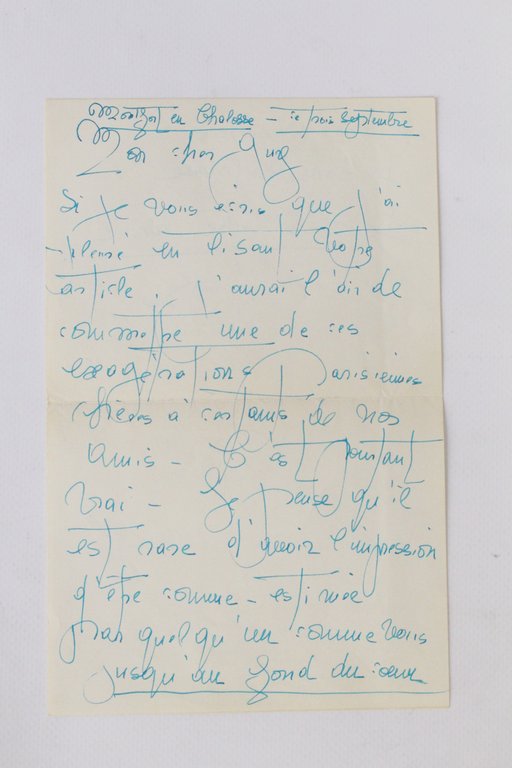 Montfort en Chalosse - ce trois septembre
Mon cher Guy
Si je vous écris que j'ai
pleuré en lisant votre
article. J'aurai l'air de
commettre une de ces
exagérations Parisiennes
chères à certains de nos
Amis - C'est pourtant
Vrai - Je pense qu'il
est rare d'avoir l'impression
d'être comme - estimée
par quelqu'un comme Vous
jusqu'au fond du cœur